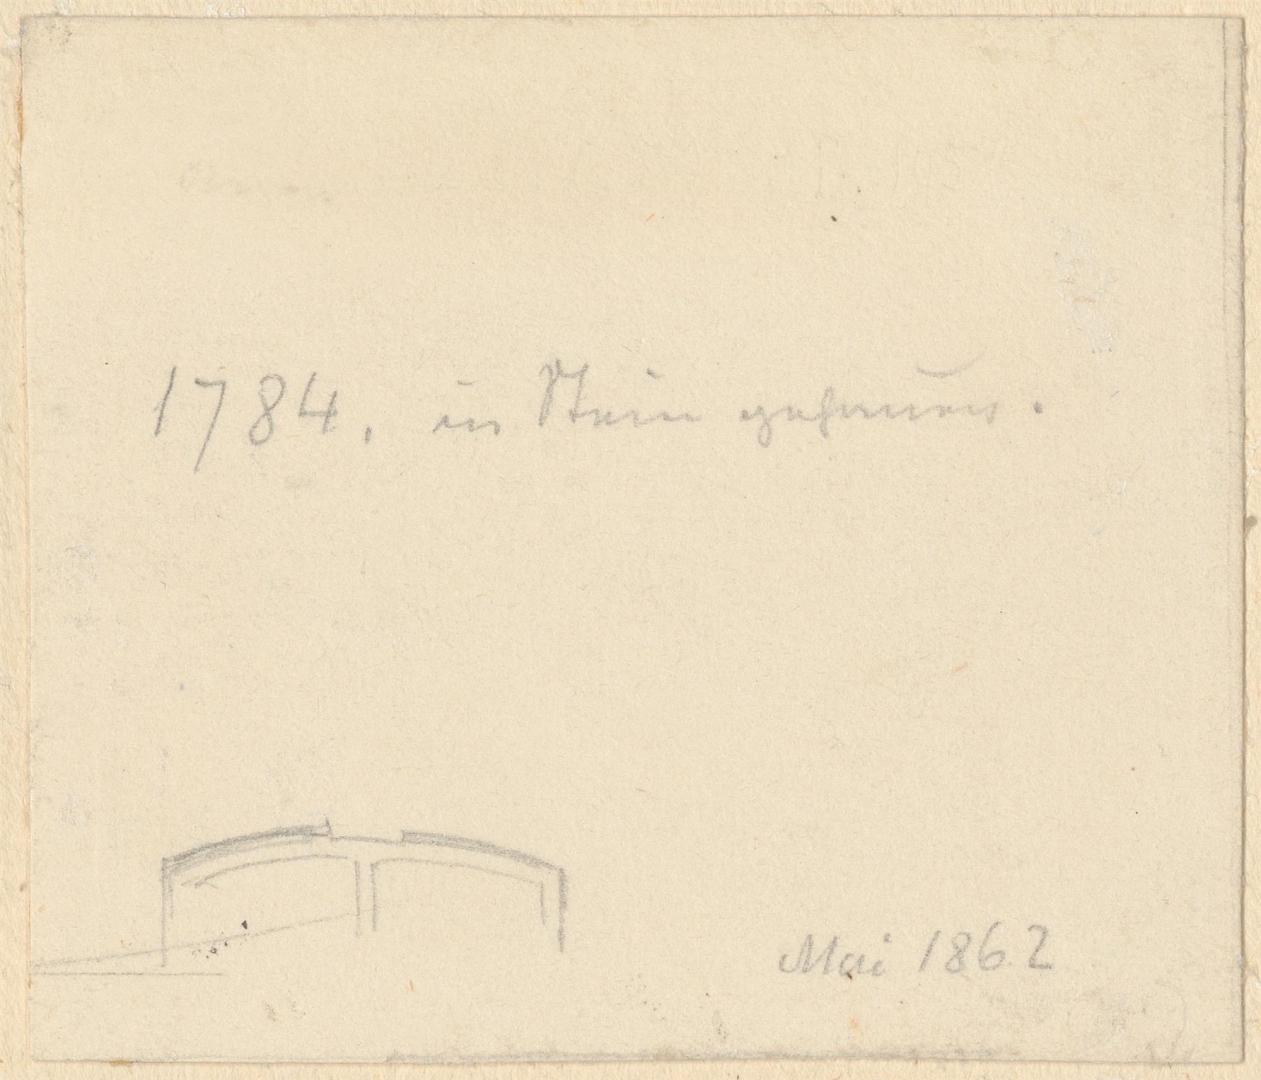 1784. in Stein gehauen.
Mai 1862